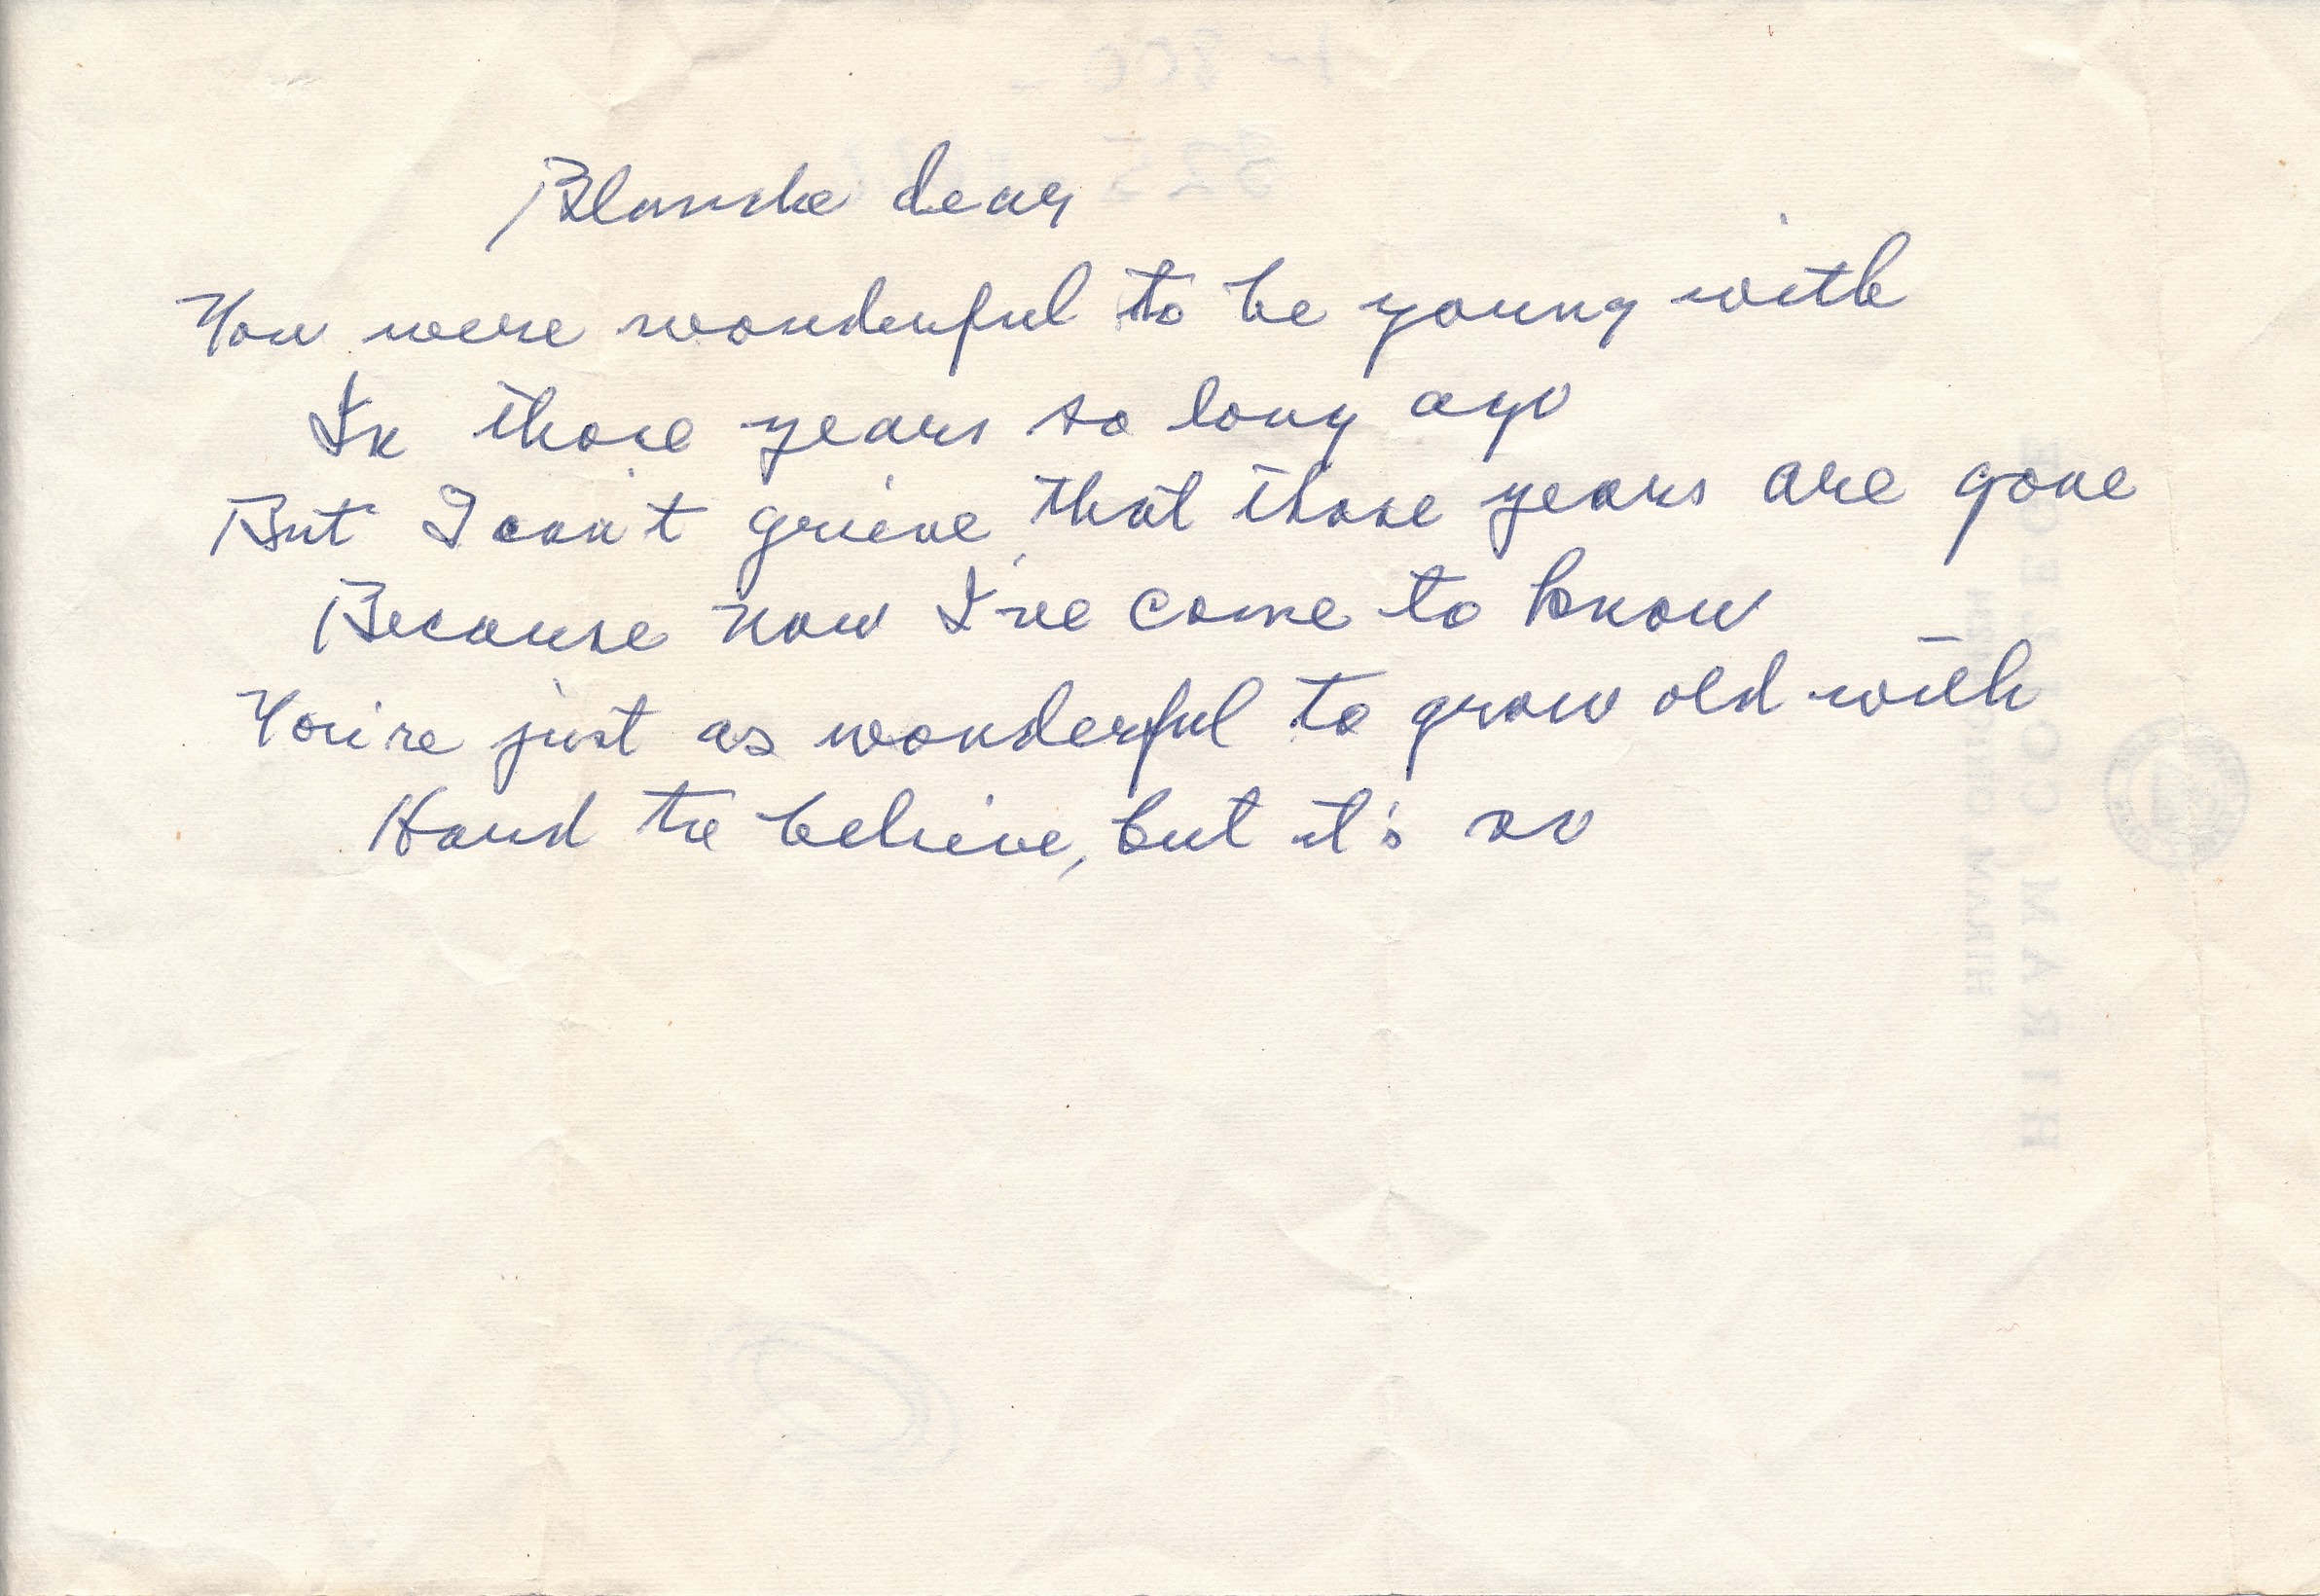 Blanche dear
You were wonderful to be young with
In those years so long ago
But I can't grieve that those years are gone
Because now I've come to know
You're just as wonderful to grow old with
Hard to believe, but it's so
1-800-
325
HIRAM COLLEGE
HIRAM